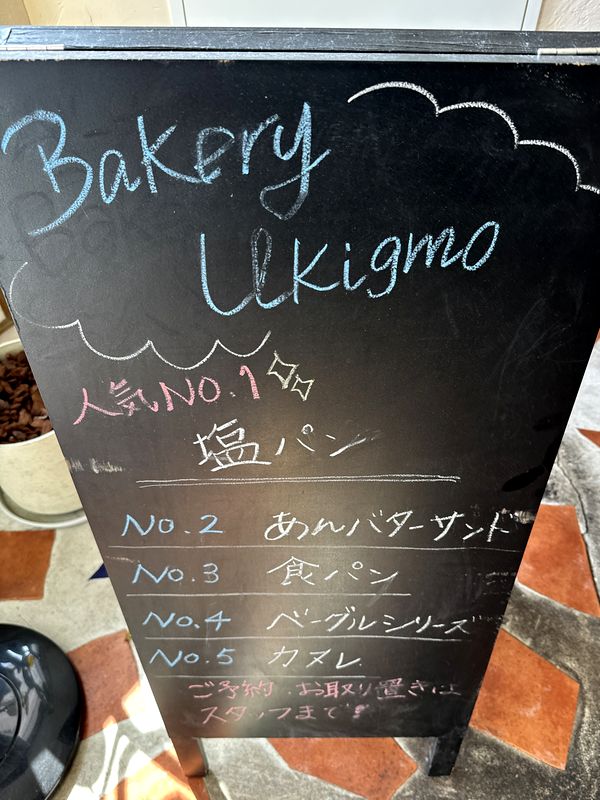 Bakery
Ukigmo
人気NO.1
塩パン
No.2 あんバターサンド
No.3 食パン
No.4 ベーグルシリーズ
No.5 カヌレ
ご予約、お取り置きは
スタッフまで!